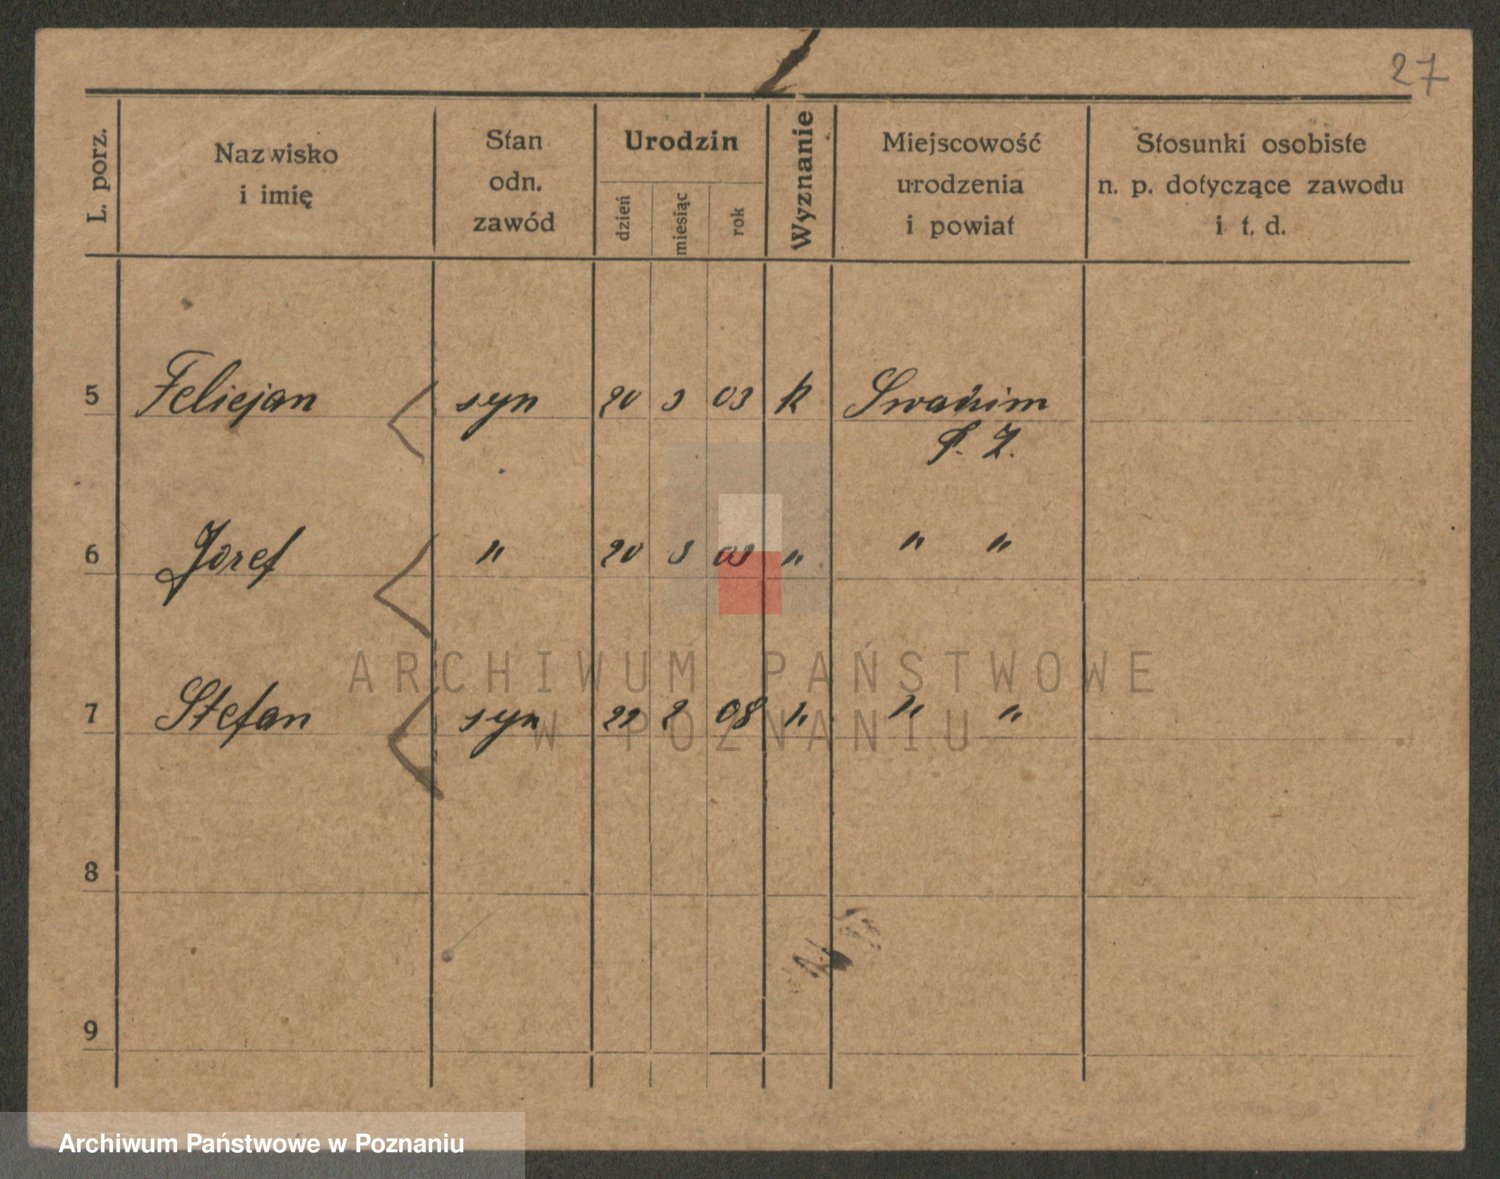 27
L. porz. Nazwisko i imię Stan odn. zawód Urodzin dzień miesiąc rok Wyznanie Miejscowość urodzenia i powiat Stosunki osobiste n. p. dotyczące zawodu i t. d.
5 Felicjan syn 20 3 03 k
6 Józef " 20 3 03 " " "
ARCHIWUM PAŃSTWOWE
7 Stefan syn 2 08 " " "
W POZNANIU
8
9
Archiwum Państwowe w Poznaniu